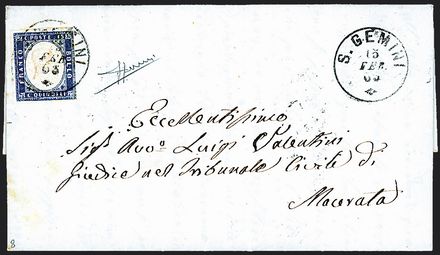 FRANCO
C. POSTE 15
C. QUINDICI
GEMINI
FEB
63
S. GEMINI
15
FEB.
63
Eccellentissimo
Sigr. Avvo. Luigi Valentini
Giudice nel Tribunale Civile di
Macerata
8